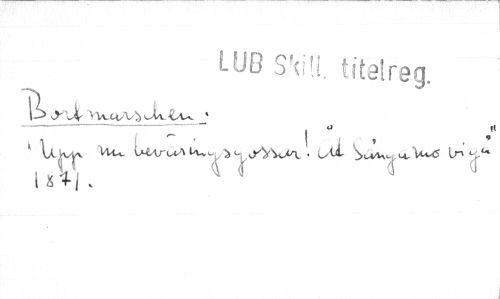 LUB Skill. titelreg.
Bortmarschen.
"Upp nu beväringsgossar! Åt Sånga mo vi gå"
1871.